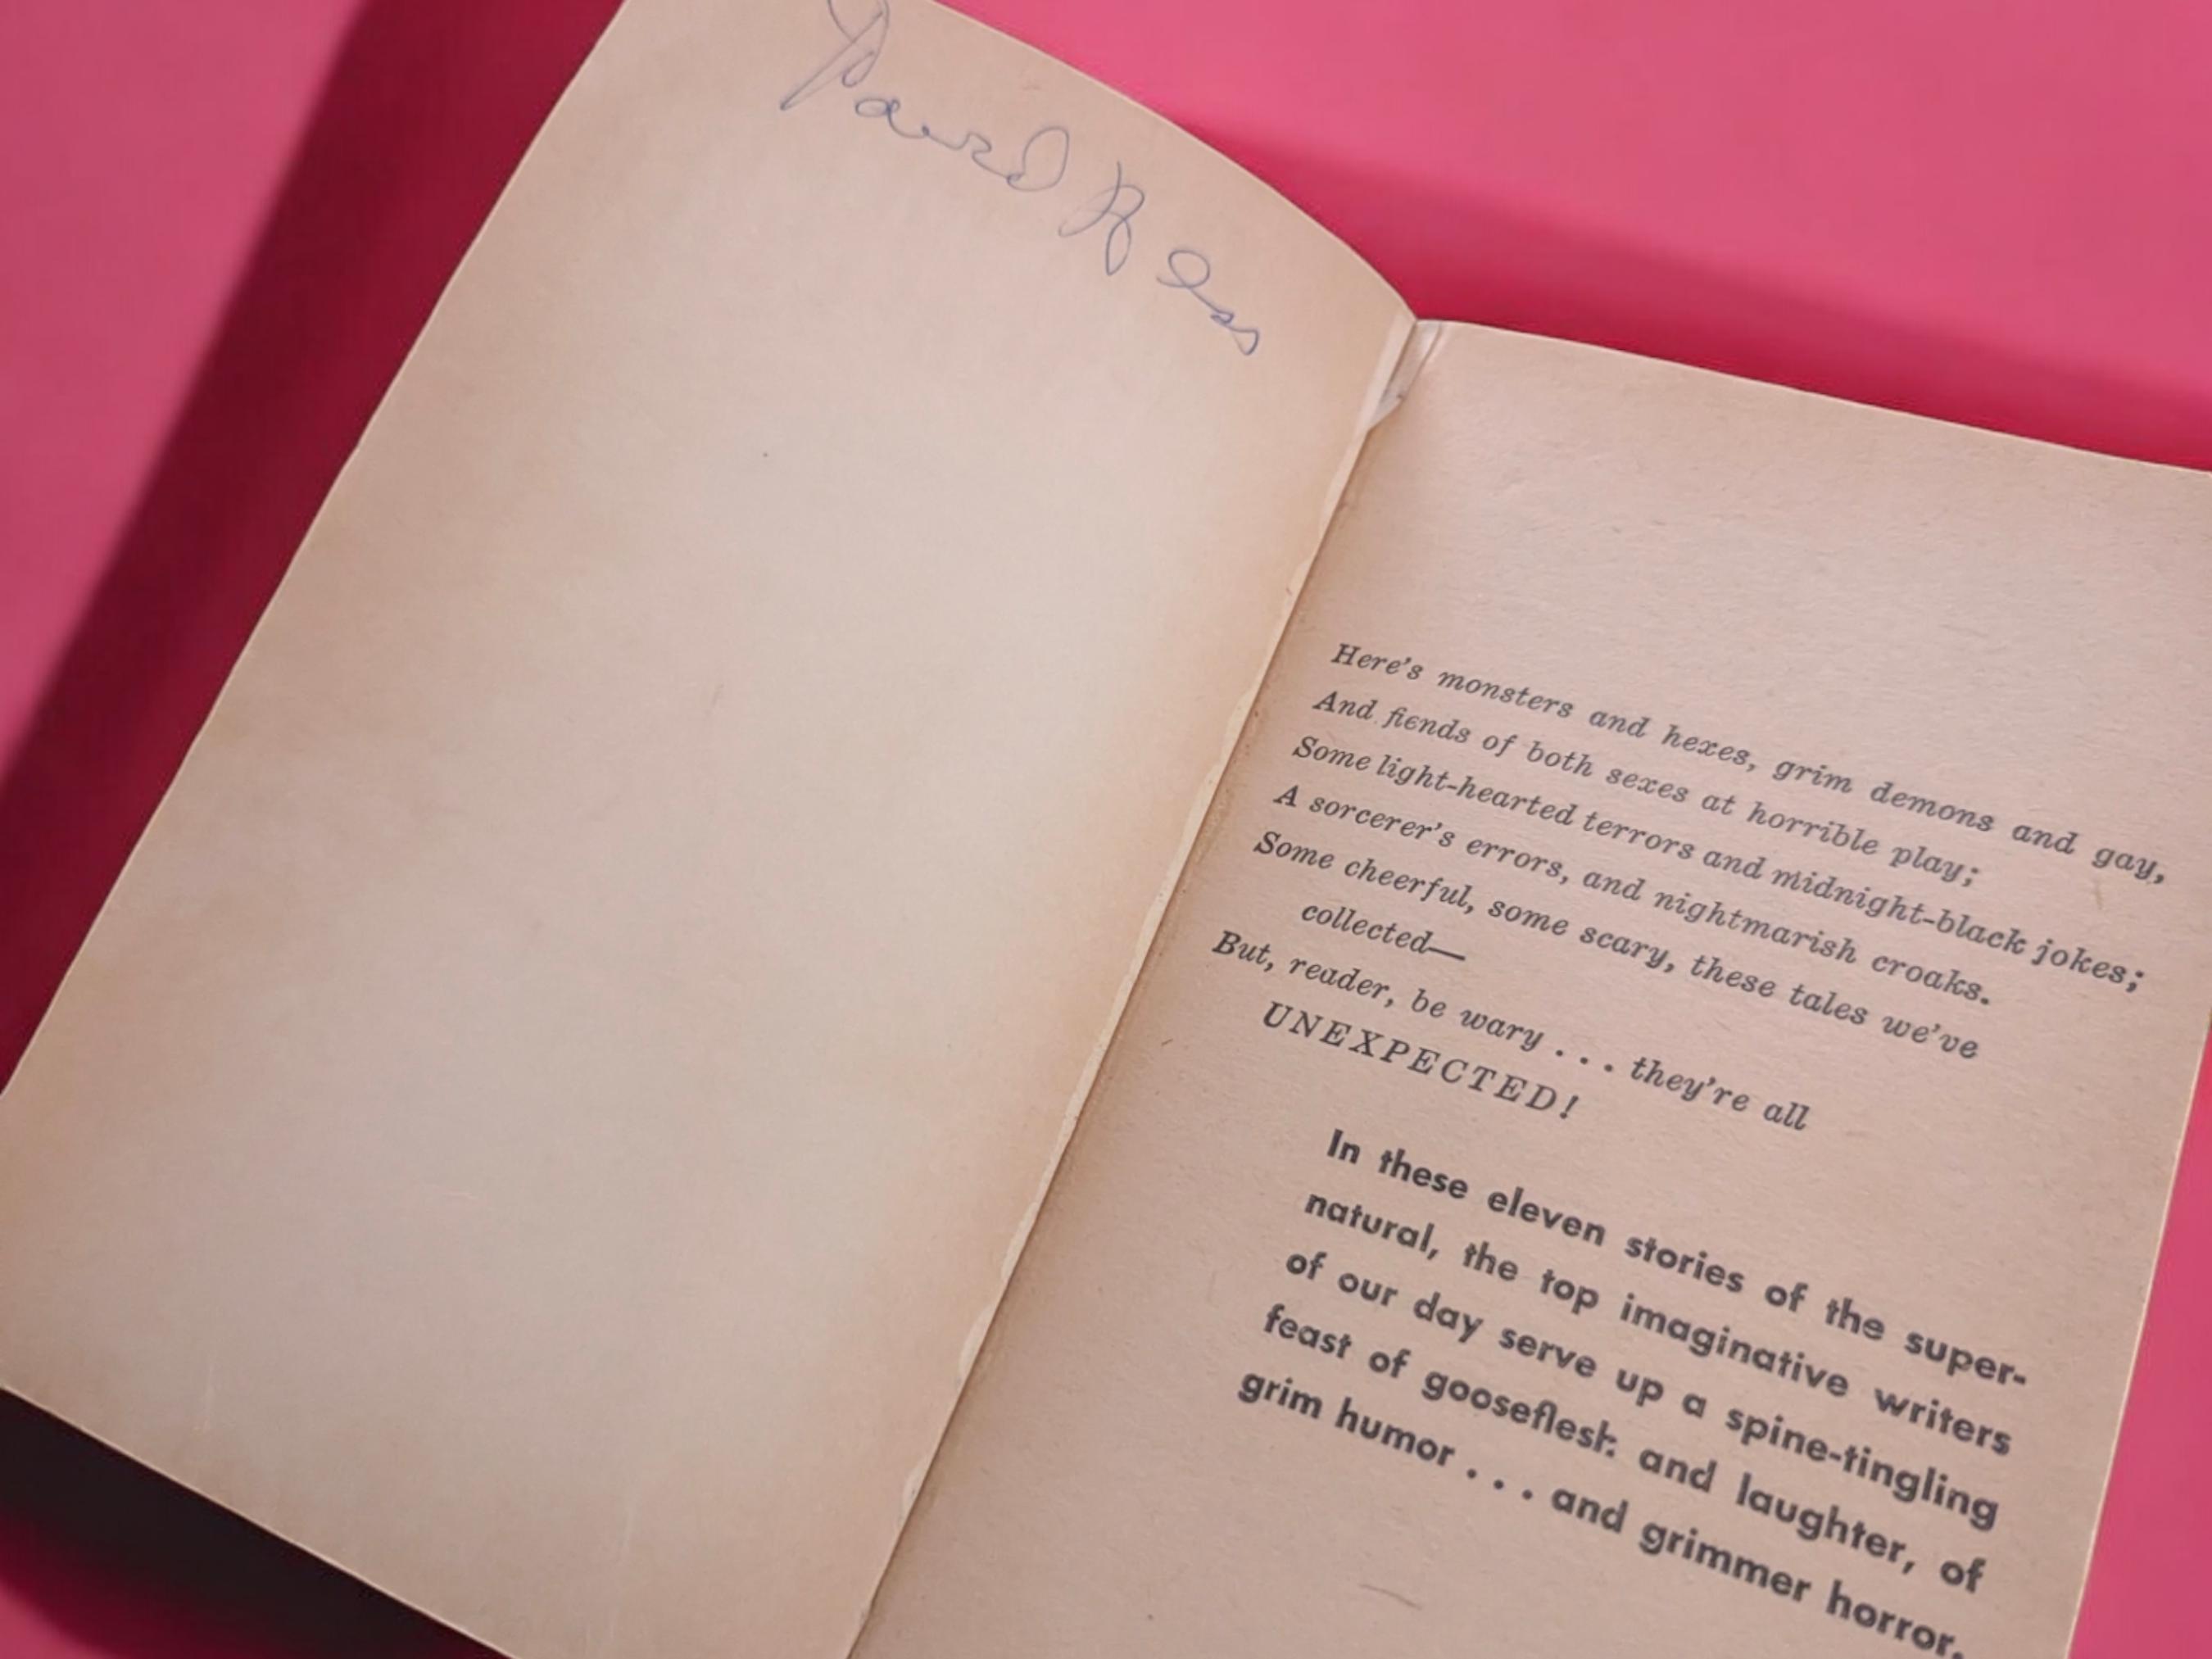 Here's monsters and hexes, grim demons and gay,
And fiends of both sexes at horrible play;
Some light-hearted terrors and midnight-black jokes;
A sorcerer's errors, and nightmarish croaks.
Some cheerful, some scary, these tales we've
collected—
But, reader, be wary . . . they're all
UNEXPECTED!
In these eleven stories of the super-
natural, the top imaginative writers
of our day serve up a spine-tingling
feast of gooseflesh and laughter, of
grim humor . . . and grimmer horror.